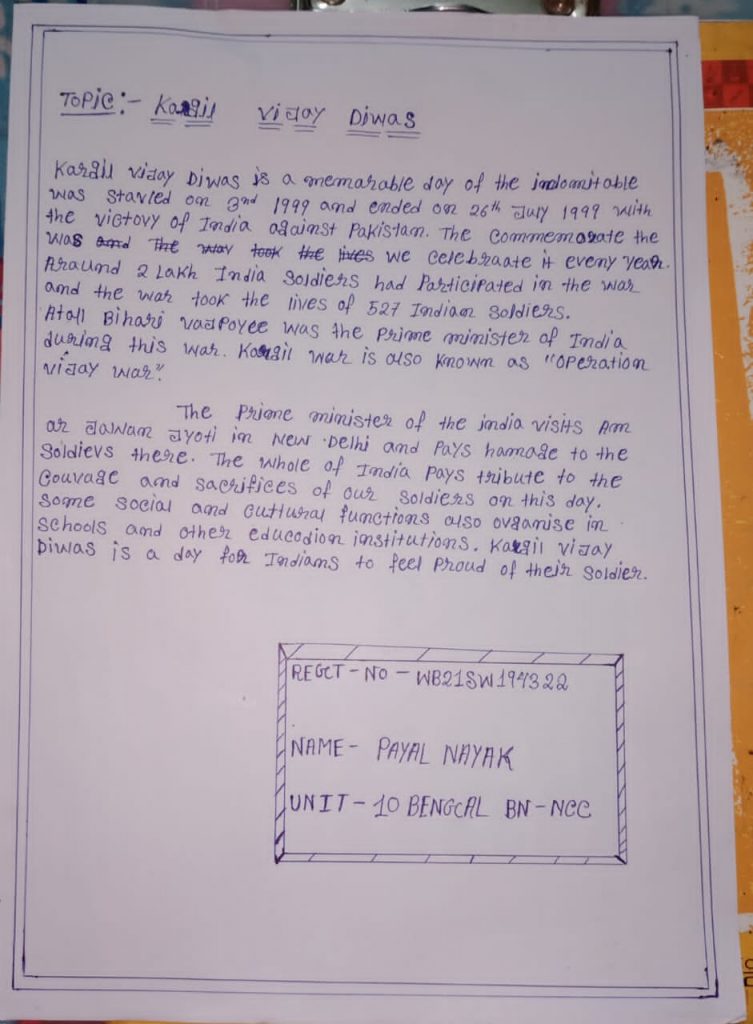 Topic:- Kargil Vijay Diwas
Kargil vijay Diwas is a memarable day of the indomitable
was started on 3rd 1999 and ended on 26th July 1999 with
the victory of India against Pakistan. The Commemorate the
was and The war took the lives we celebraate it eveny year.
Araund 2 Lakh India Soldiers had Participated in the war
and the war took the lives of 527 Indian Soldiers.
Atall Bihari vajpoyee was the Prime minister of India
during this war. Kargil war is also known as "operation
vijay war".
The Prime minister of the india visits Am
ar Jawan Jyoti in New Delhi and Pays hamage to the
Soldievs there. The whole of India Pays tribute to the
Couvage and sacrifices of our soldiers on this day.
Some social and cuttural functions also ovganise in
Schools and other educodion institutions. Kargil vijay
Diwas is a day for Indians to feel Proud of their Soldier.
REGT-NO - WB21SW194322
NAME- PAYAL NAYAK
UNIT- 10 BENGAL BN-NCC